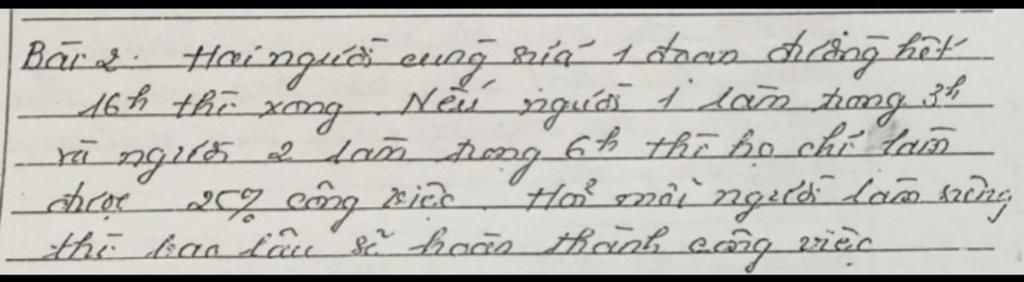 Bài 2. Hai người cùng sửa 1 đoạn đường hết
16h thì xong. Nếu người 1 làm trong 3h
và người 2 làm trong 6h thì họ chỉ làm
được 25% công việc. Hỏi mỗi người làm riêng
thì bao lâu sẽ hoàn thành công việc